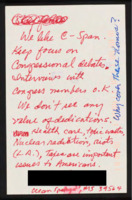 We like C-Span.
Keep focus on
Congressional debates,
Interviews with
Congress members o.k.
We don't see any
value of dedications.
Health care, toxic waste,
Nuclear radiation, riots
(L.A.), Taxes are important
issues to Americans.
Ocean Springs, MS 39564
Why cover these Towns?